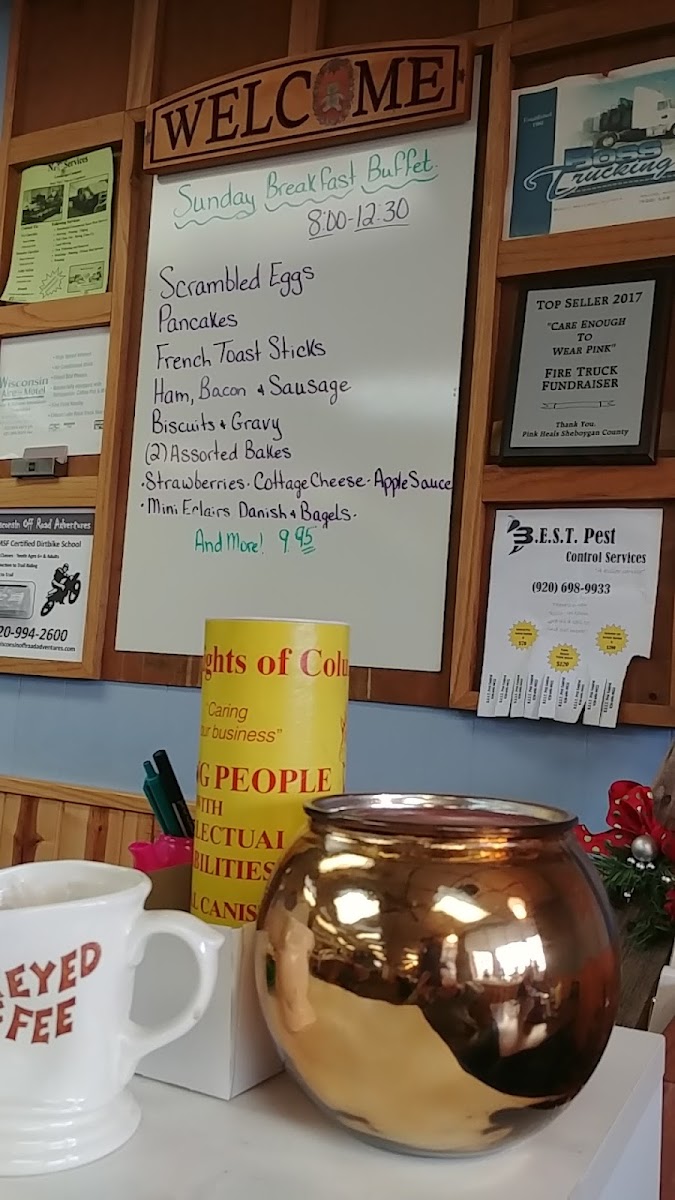 WELCOME
Sunday Breakfast Buffet
8:00-12:30
Scrambled Eggs
Pancakes
French Toast Sticks
Ham, Bacon & Sausage
Biscuits & Gravy
(2) Assorted Bakes
·Strawberries·Cottage Cheese·Apple Sauce
·Mini Eclairs Danish & Bagels·
And More! 9.95
Services
Wisconsin
Motel
Off Road Adventures
MSF Certified Dirtbike School
20-994-2600
Trucking
TOP SELLER 2017
"CARE ENOUGH
TO
WEAR PINK"
FIRE TRUCK
FUNDRAISER
Thank You.
Pink Heals Sheboygan County
B.E.S.T. Pest
Control Services
(920) 698-9933
ghts of Colu
"Caring
ur business"
G PEOPLE
WITH
LECTUAL
BILITIES
L CANIS
EYED
FFEE